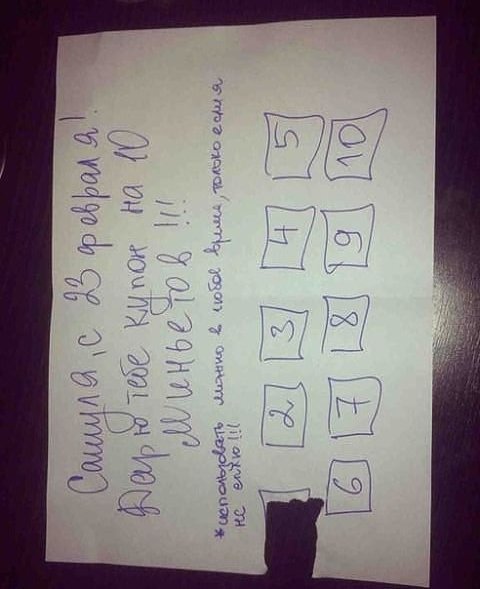 Сашуля, с 23 февраля!
Дарю тебе купон на 10
Миньетов !!!
*использовать можно в любое время, только если я
не сплю!!!
2 3 4 5
6 7 8 9 10